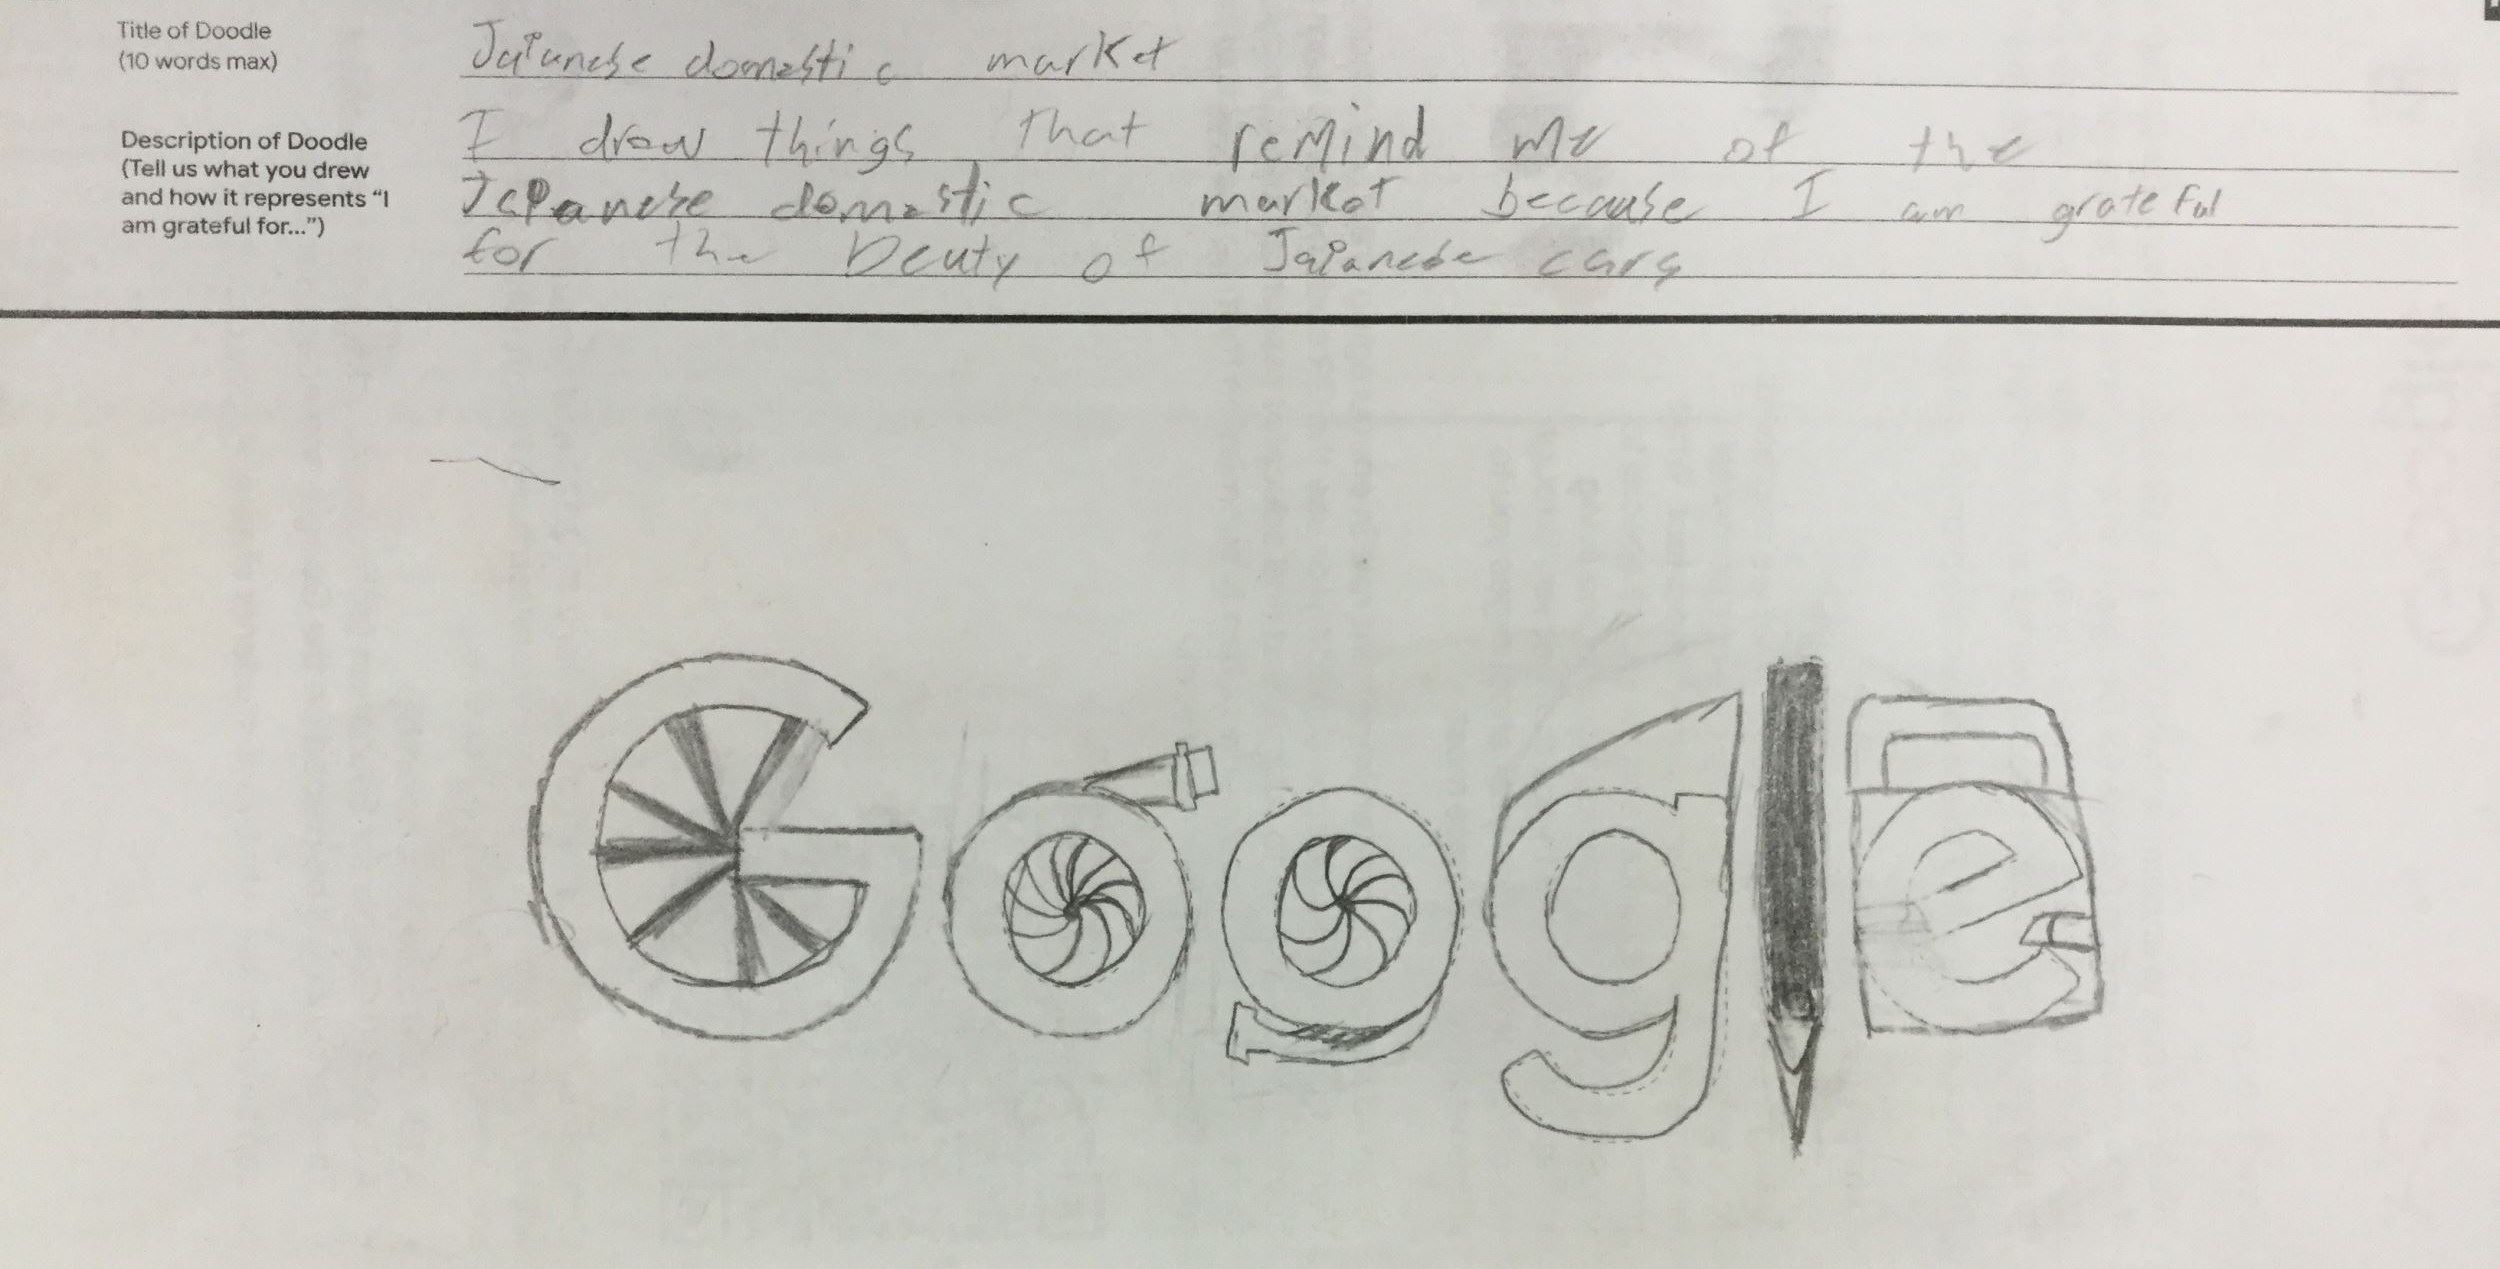 Title of Doodle
(10 words max)
Japanese domestic market
Description of Doodle
(Tell us what you drew
and how it represents “I
am grateful for...”)
I drew things that remind me of the
Japanese domestic market because I am grateful
for the beuty of Japanese cars
Google